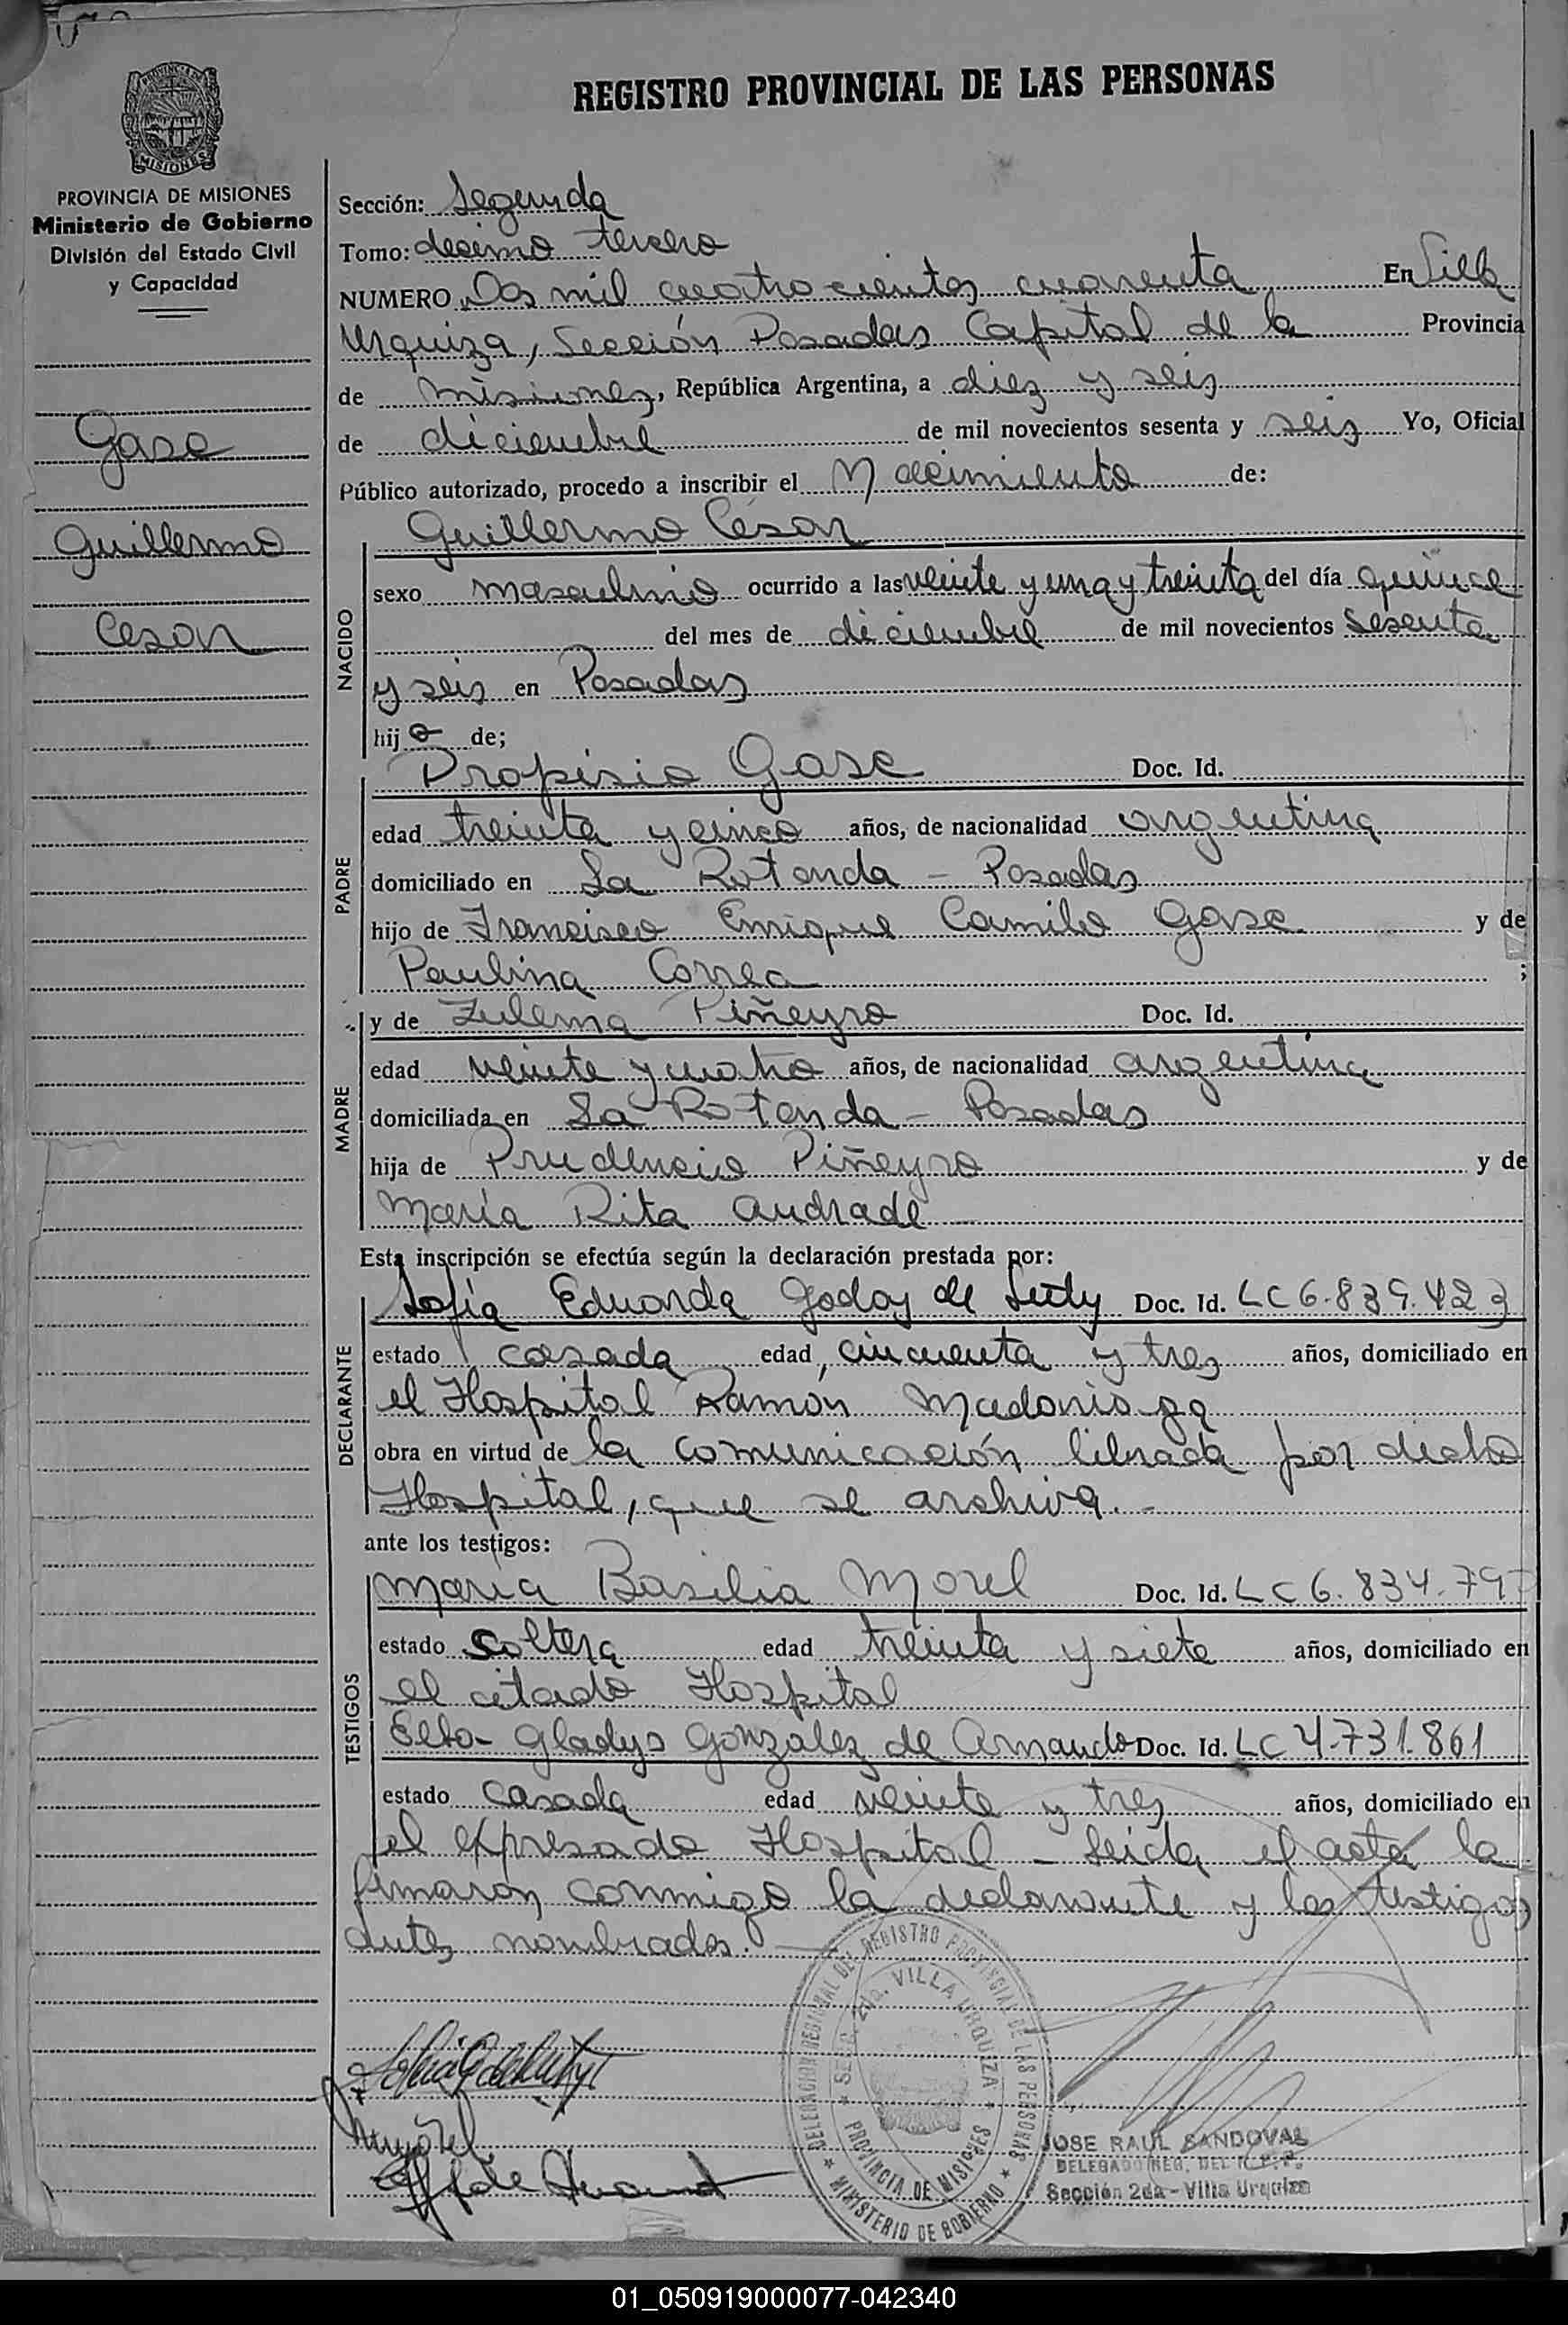 REGISTRO PROVINCIAL DE LAS PERSONAS
MISIONES
PROVINCIA DE MISIONES
Ministerio de Gobierno
División del Estado Civil
y Capacidad
Gase
Guillermo
Cesar
Sección: Segunda
Tomo: decimo tercero
NUMERO Dos mil cuatrocientos cuarenta En Villa
Urquiza, Sección Posadas Capital de la Provincia
de Misiones, República Argentina, a diez y seis
de diciembre de mil novecientos sesenta y seis Yo, Oficial
Público autorizado, procedo a inscribir el Nacimiento de:
Guillermo César
NACIDO
sexo masculino ocurrido a las veinte y una y treinta del día quince
del mes de diciembre de mil novecientos sesenta
y seis en Posadas
hijo de;
PADRE
Propisio Gase Doc. Id.
edad treinta y cinco años, de nacionalidad argentina
domiciliado en La Rotonda - Posadas
hijo de Francisco Enrique Camilo Gase y de
Paulina Correa ;
MADRE
y de Zulema Piñeyro Doc. Id.
edad veinte y cuatro años, de nacionalidad argentina
domiciliada en La Rotonda - Posadas
hija de Prudencio Piñeyro y de
María Rita Andrade
Esta inscripción se efectúa según la declaración prestada por:
DECLARANTE
Sofía Eduarda Godoy de Doc. Id. LC 6.839.423
estado casada edad, cincuenta y tres años, domiciliado en
el Hospital Ramón Madariaga
obra en virtud de la comunicación librada por dicho
Hospital, que se archiva. -
ante los testigos:
TESTIGOS
María Basilia Morel Doc. Id. LC 6.834.797
estado soltera edad treinta y siete años, domiciliado en
el citado Hospital
Elba Gladys Gonzalez de Armando Doc. Id. LC 4.731.861
estado casada edad veinte y tres años, domiciliado en
el expresado Hospital - Leida el acta la
firmaron conmigo la declarante y los testigos
antes nombrados.
DELEGACION REGIONAL DEL REGISTRO PROVINCIAL DE LAS PERSONAS
SECC. 2da. VILLA URQUIZA
PROVINCIA DE MISIONES
MINISTERIO DE GOBIERNO
JOSE RAUL SANDOVAL
DELEGADO REG. DEL R.P.P.
Sección 2da - Villa Urquiza
01_050919000077-042340